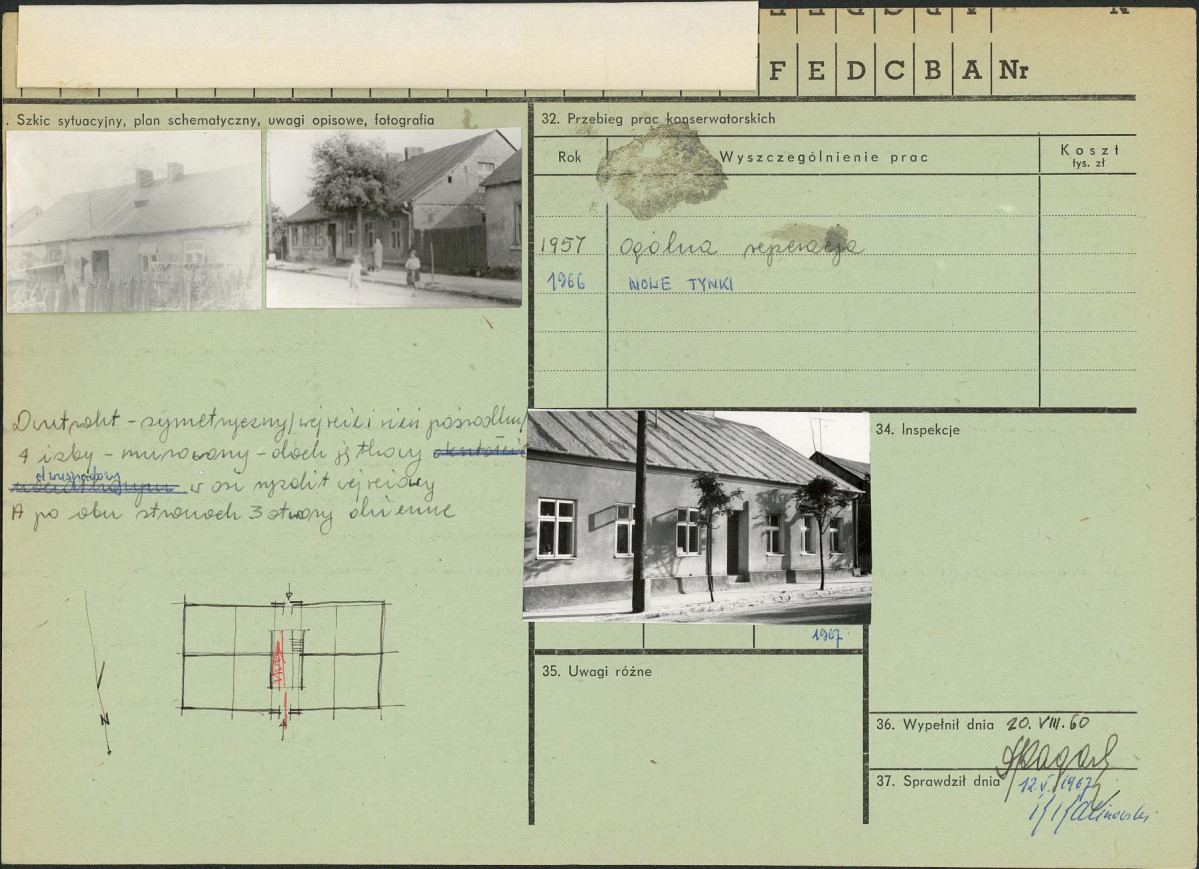 F E D C B A Nr
. Szkic sytuacyjny, plan schematyczny, uwagi opisowe, fotografia
Dwutrakt - symetryczny /wejście i sień pośrodku/
4 izby - murowany - dach
dwuspadowy
w osi ryzalit wejściowy
A po obu stronach 3 otwory okienne
N
32. Przebieg prac konserwatorskich
Rok Wyszczególnienie prac Koszt
tys. zł
1957 Ogólna reperacja
1966 NOWE TYNKI
1967
34. Inspekcje
35. Uwagi różne
36. Wypełnił dnia 20. VIII. 60
37. Sprawdził dnia 12.V.1967
Kalinowski